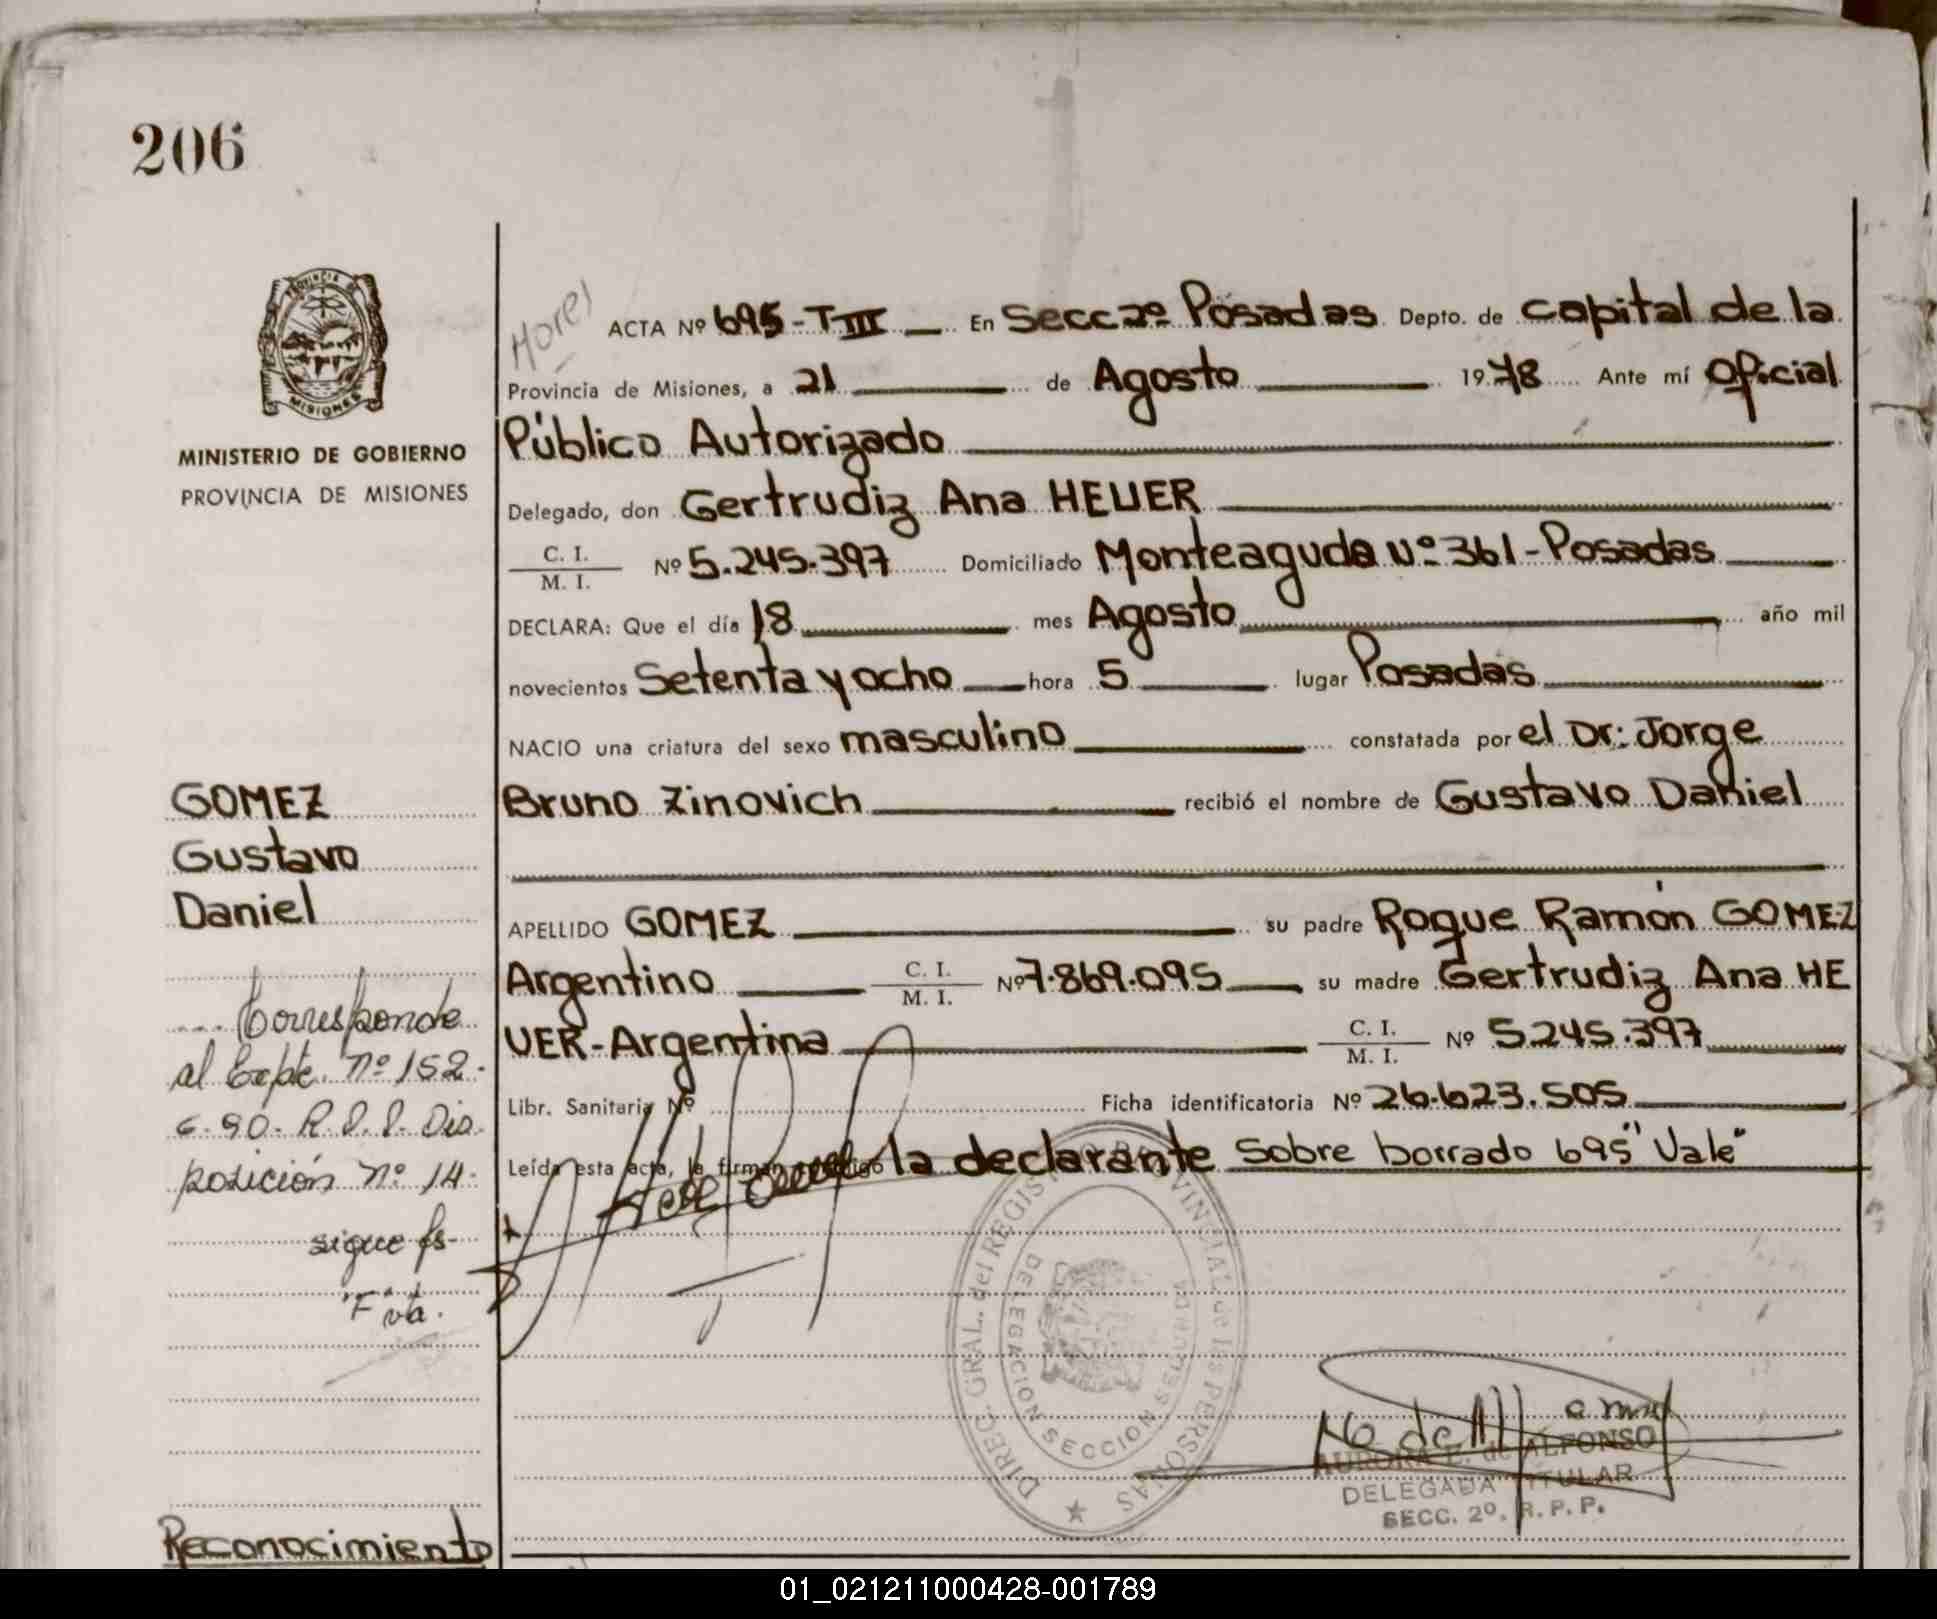 206
Hores
PROVINCIA DE
MISIONES
MINISTERIO DE GOBIERNO
PROVINCIA DE MISIONES
ACTA Nº 695-T III En Secc 2º Posadas Depto. de Capital de la
Provincia de Misiones, a 21 de Agosto 1978 Ante mí Oficial
Público Autorizado
Delegado, don Gertrudiz Ana HEUER
C. I.
M. I. Nº 5.245.397 Domiciliado Monteagudo Nº 361-Posadas
DECLARA: Que el día 18 mes Agosto año mil
novecientos Setenta y ocho hora 5 lugar Posadas
NACIO una criatura del sexo masculino constatada por el Dr: Jorge
Bruno Zinovich recibió el nombre de Gustavo Daniel
APELLIDO GOMEZ su padre Roque Ramón GOMEZ
Argentino C. I. M. I. Nº 7.869.095 su madre Gertrudiz Ana HE
UER-Argentina C. I. M. I. Nº 5.245.397
Libr. Sanitaria Nº Ficha identificatoria Nº 26.623.505
Leída esta acta, la firman conmigo la declarante Sobre borrado 695" Vale"
GOMEZ
Gustavo
Daniel
Corresponde
al Expte. Nº 152-
6-90. R.P.P. Dis
posición Nº 14-
sigue fs-
Vta.
Reconocimiento
DIREC. GRAL. del REGISTRO PROVINCIAL de las PERSONAS
DELEGACION SECCION SEGUNDA
AURORA E. de ALFONSO
DELEGADA TITULAR
SECC. 2º. R. P. P.
01_021211000428-001789